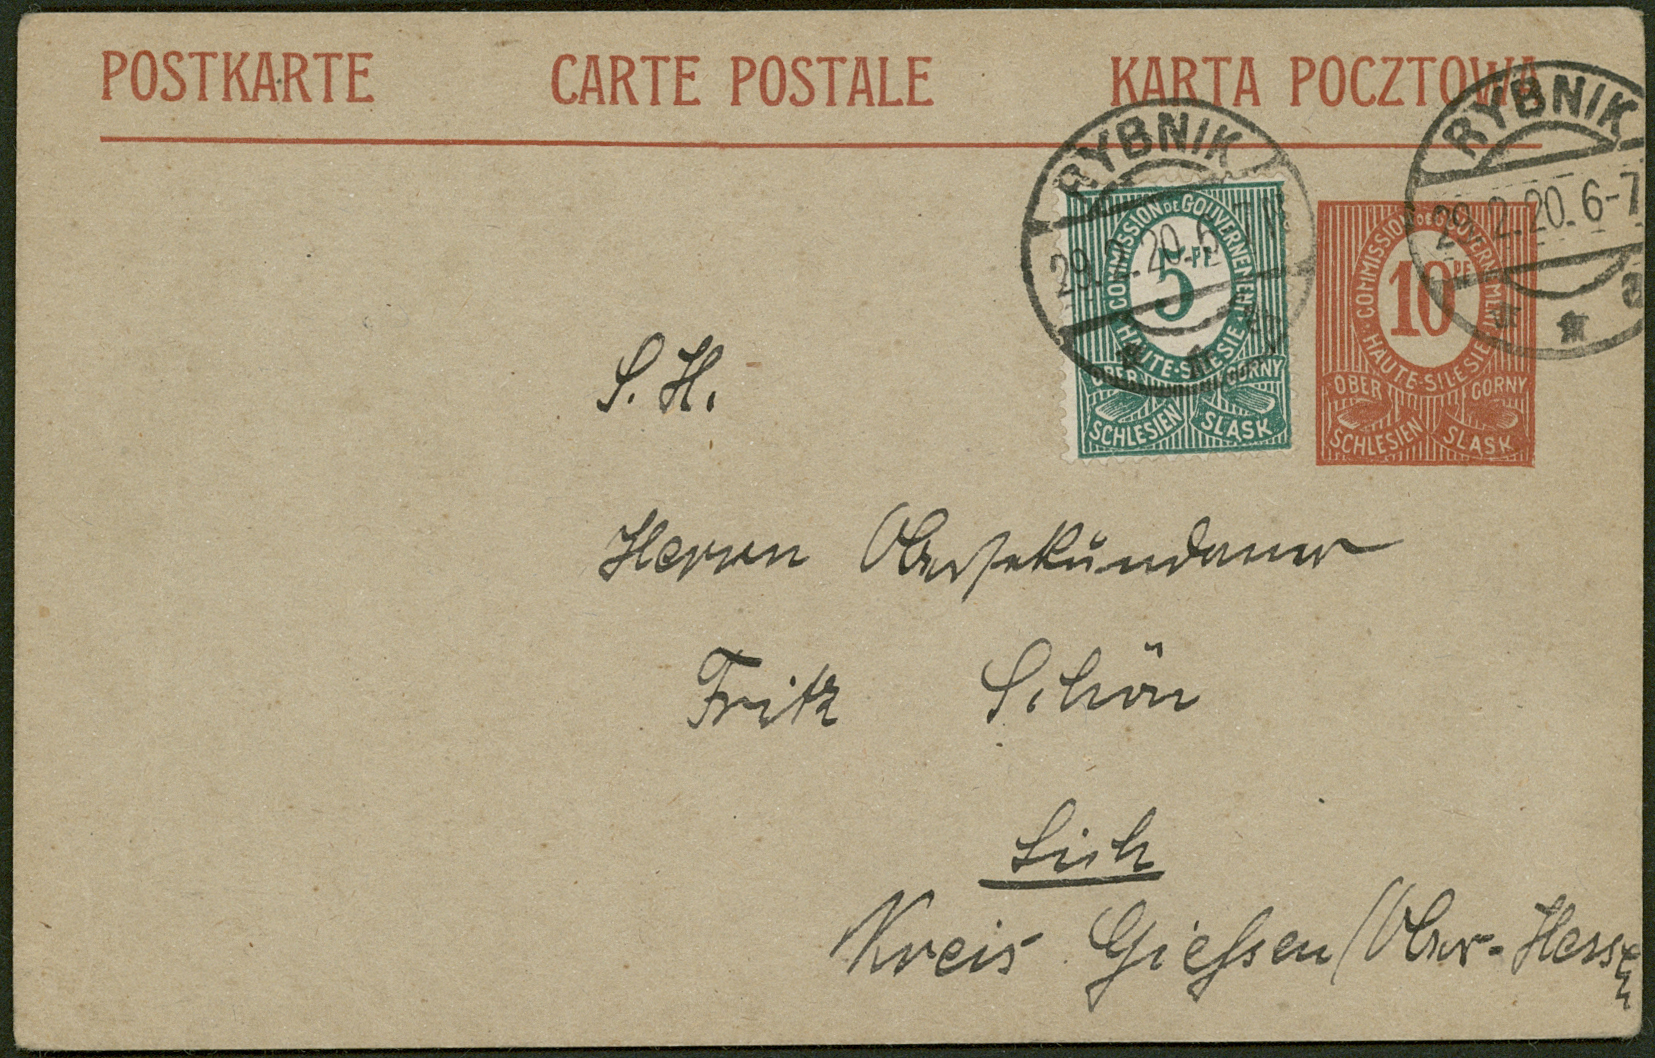 POSTKARTE CARTE POSTALE KARTA POCZTOWA
RYBNIK
29.2.20.6-7
RYBNIK
29.2.20.6-7
COMMISSION DE GOUVERNEMENT · HAUTE-SILESIE ·
5 PF
OBER SCHLESIEN
GORNY SLĄSK
COMMISSION DE GOUVERNEMENT · HAUTE-SILESIE ·
10 PF
OBER SCHLESIEN
GORNY SLĄSK
S. H.
Herrn Obersekundaner
Fritz Schön
Lich
Kreis Giessen / Ober-Hessen